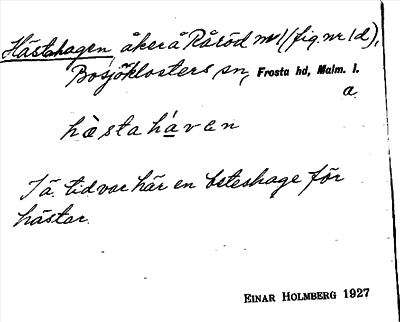 Hästahagen åker å Råröd nr 1 (fig. nr 1 d),
Bosjöklosters sn, Frosta hd, Malm. l.
a.
hàstahávan
I ä. tid var här en beteshage för
hästar.
EINAR HOLMBERG 1927